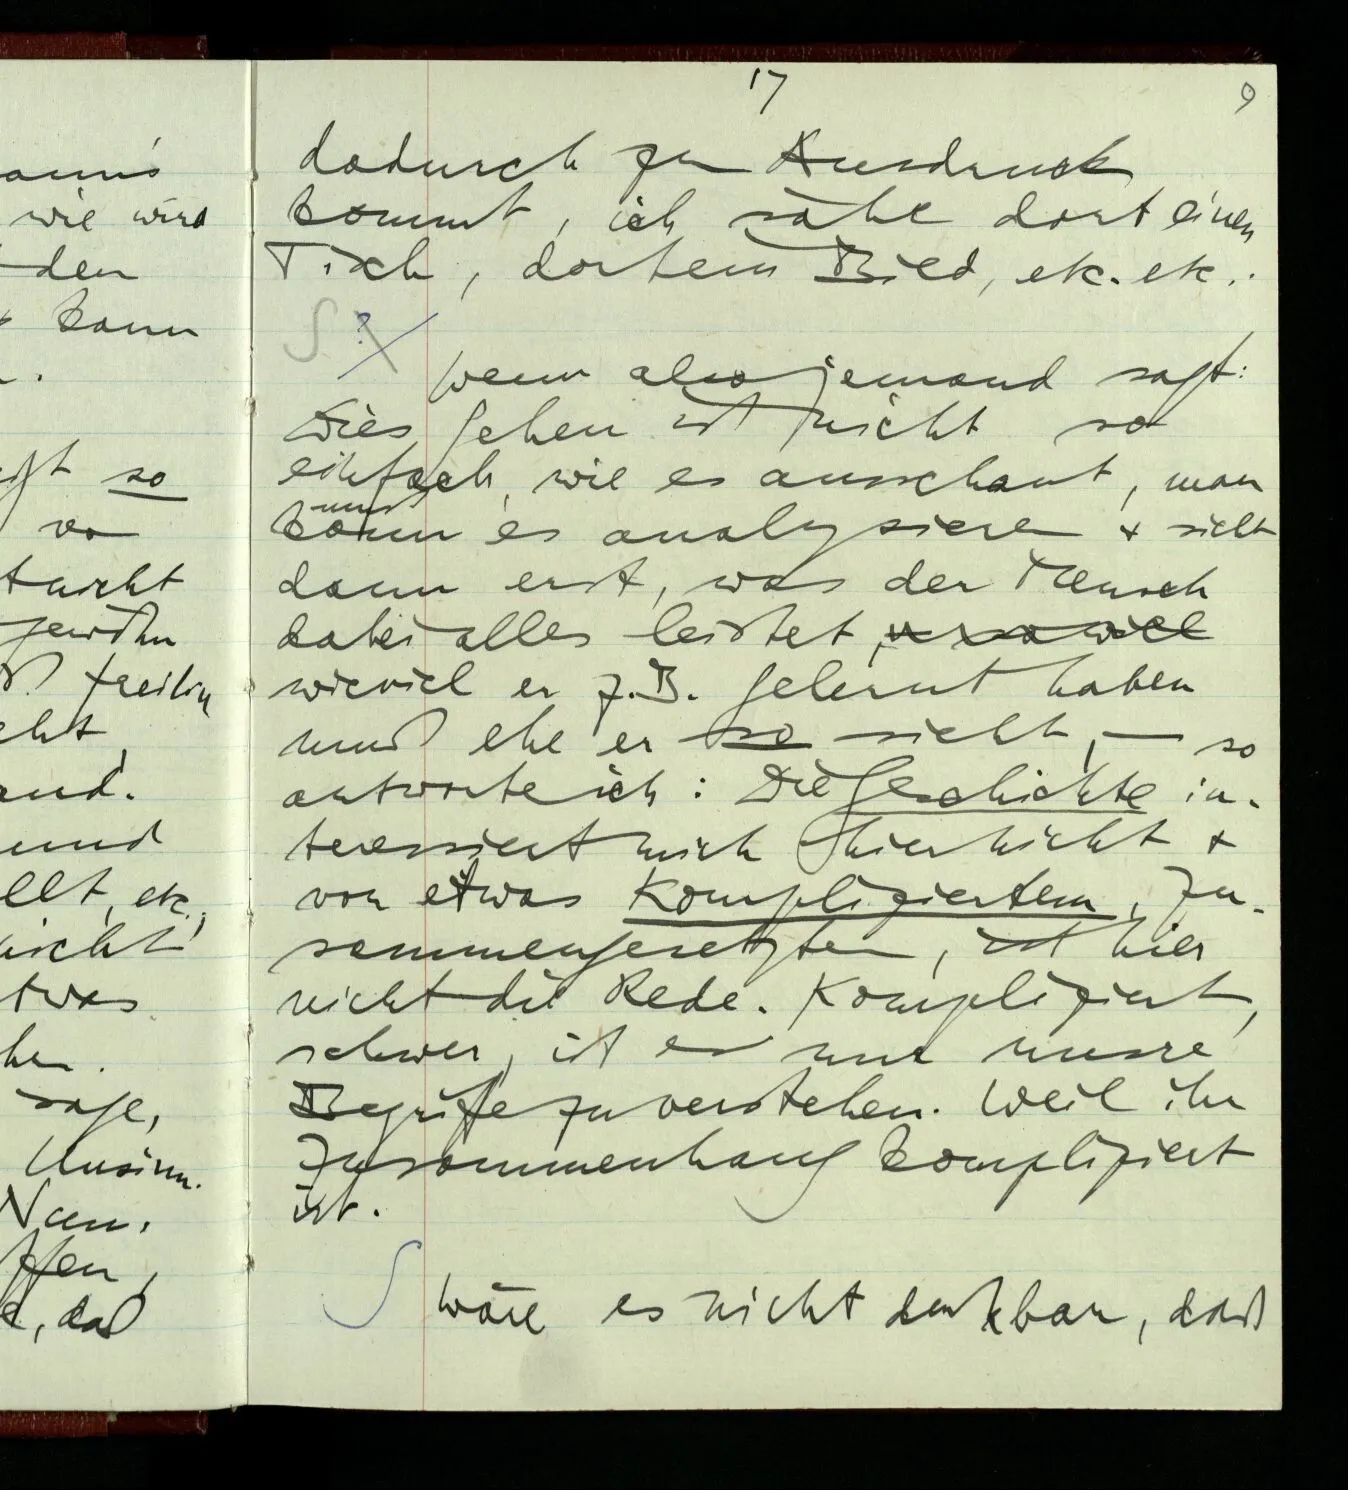 17
9
dadurch zu Ausdruck
kommt, ich sähe dort einen
Tisch, dort ein Bild, etc. etc..
S ?
Wenn also jemand sagt:
Dies Sehen ist nicht so
einfach, wie es ausschaut, man
muß
kann es analysieren + sieht
dann erst, was der Mensch
dabei alles leistet, wieviel
wieviel er z.B. gelernt haben
muß ehe er so sieht, — so
antworte ich: Die Geschichte in-
teressiert mich hier nicht +
von etwas Kompliziertem, Zu-
sammengesetzten, ist hier
nicht die Rede. Kompliziert,
schwer, ist es nur unsre
Begriffe zu verstehen. Weil ihr
Zusammenhang kompliziert
ist.
S Wäre es nicht denkbar, daß
wie wird
den
kann
so
wo
nicht
freilich
und
etc.,
nicht
etwas
sage,
Unsinn.
daß